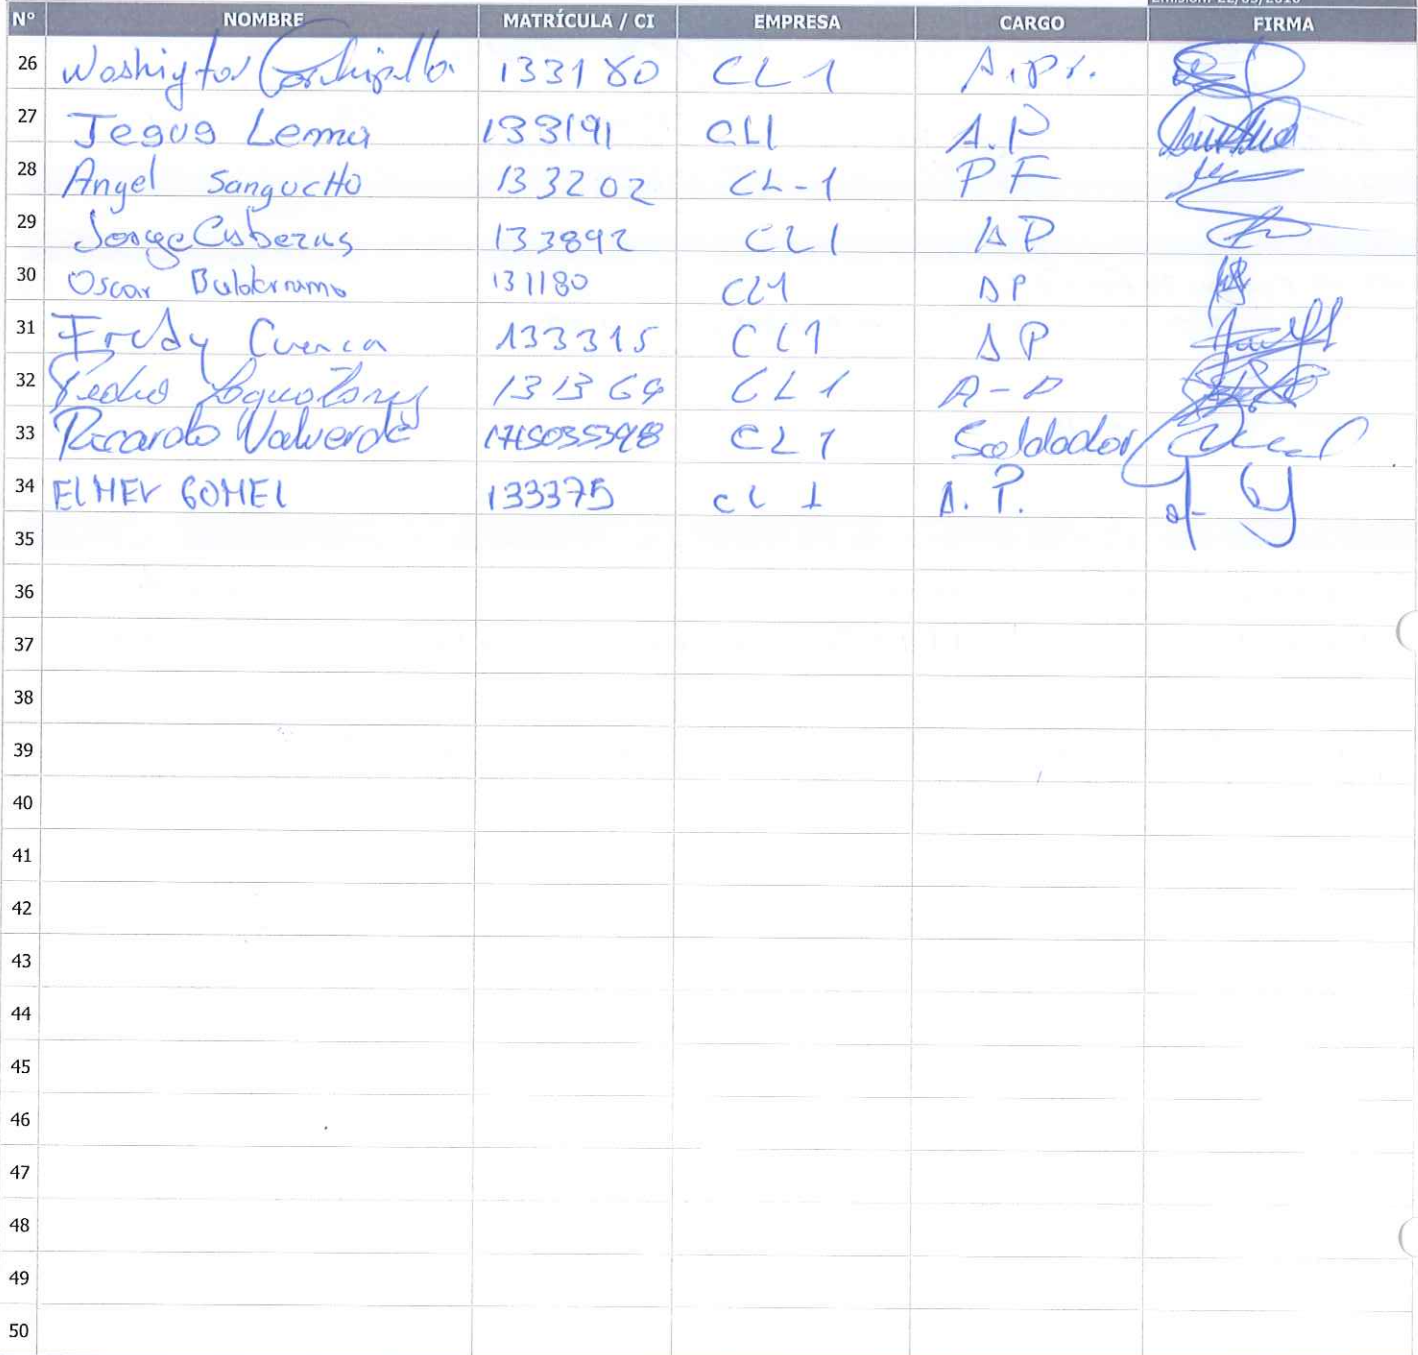 N° NOMBRE MATRÍCULA / CI EMPRESA CARGO FIRMA
26 Washigton 133180 CL1 A.Pr.
27 Jegus Lema 133191 CL1 A.P
28 Angel Sangucho 133202 CL-1 PF
29 Jorge 133892 CL1 AP
30 Oscar 131180 CL1 AP
31 Fredy Cuenca 133315 CL1 AP
32 Pedro 131369 CL1 A-P
33 Ricardo Valverde CL1 Soldador
34 133375 CL1 A.P.
35
36
37
38
39
40
41
42
43
44
45
46
47
48
49
50